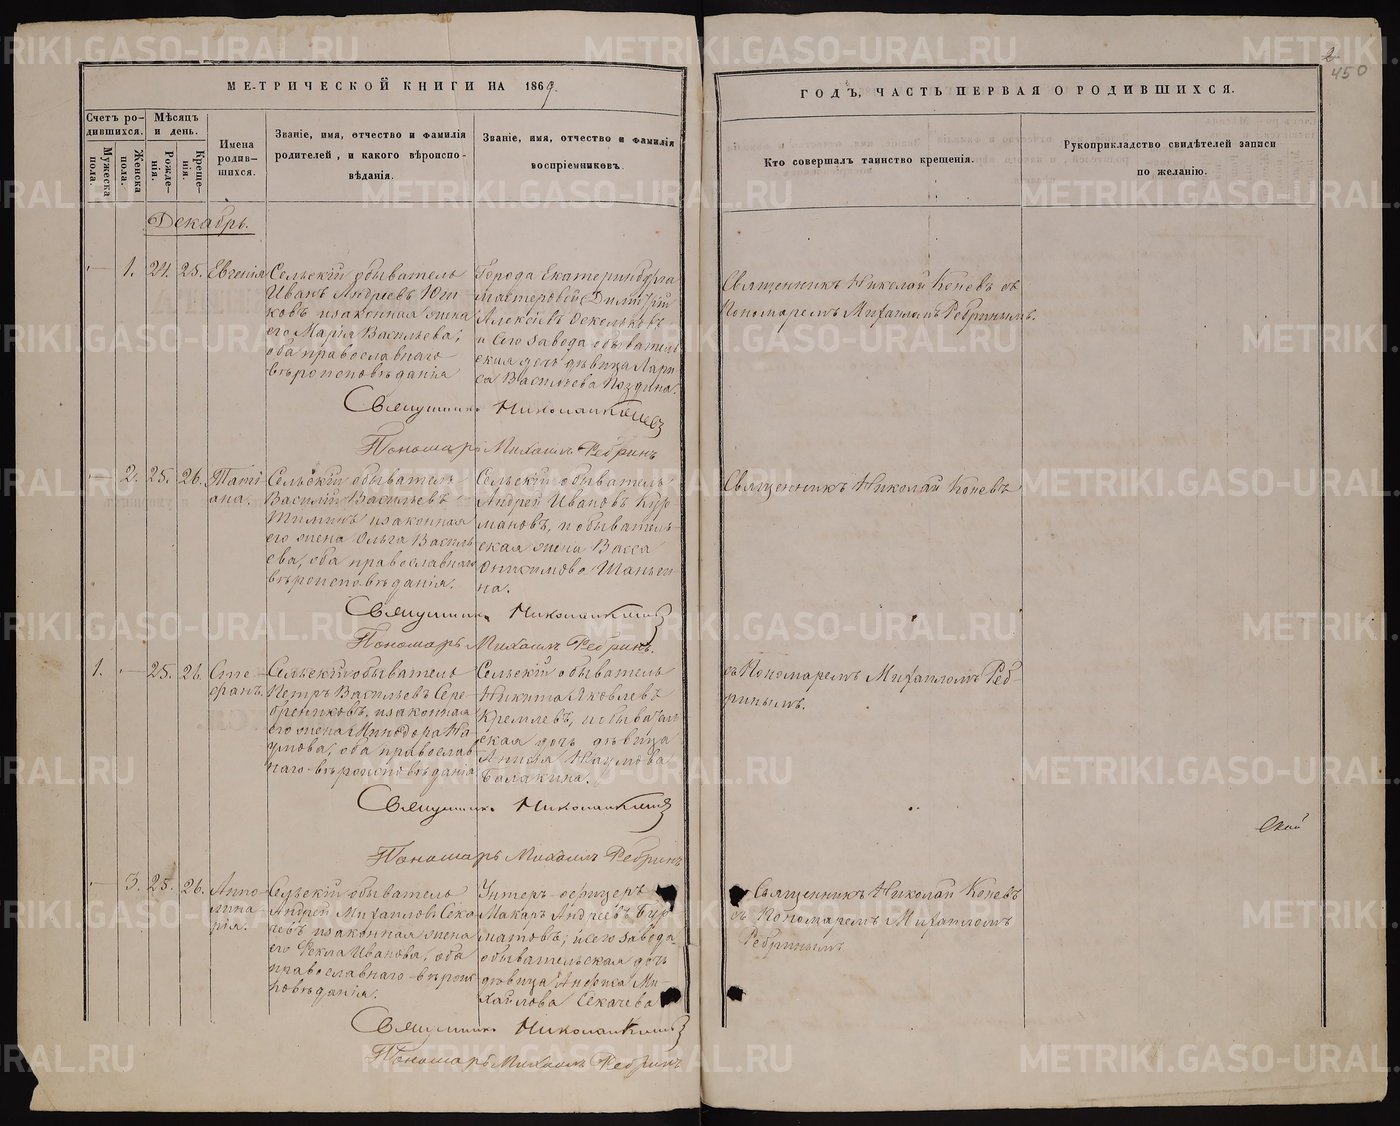 МЕТРИЧЕСКОЙ КНИГИ НА 1869
ГОДЪ, ЧАСТЬ ПЕРВАЯ О РОДИВШИХСЯ.
450
Счетъ ро-
дившихся.
Мужеска
пола.
Женска
пола.
Мѣсяцъ
и день.
Рожде-
нія.
Креще-
нія.
Имена
родив-
шихся.
Званіе, имя, отчество и фамилія
родителей, и какого вѣроиспо-
вѣданія.
Званіе, имя, отчество и фамилія
воспріемниковъ.
Кто совершалъ таинство крещенія.
Рукоприкладство свидѣтелей записи
по желанію.
Декабрь.
1. 24. 25. Евгенія
Сельскій обыватель
Иванъ Андреевъ
ковъ и законная жена
его Марія Васильева,
оба православнаго
вѣроисповѣданія
Города Екатеринбурга
мастеровой Димитрій
Алексѣевъ
и сего завода обыватель
ская дочь дѣвица Лари
са Васильева
Священникъ Николай Коневъ съ
Пономаремъ Михаиломъ Ребринымъ.
Священникъ Николай Коневъ
Пономарь Михаилъ Ребринъ
2. 25. 26. Таті
ана.
Сельскій обыватель
Василій Васильевъ
и законная
его жена Ольга Василь
ева, оба православнаго
вѣроисповѣданія.
Сельскій обыватель
Андрей Ивановъ Кур
мановъ, и обыватель
ская жена Васса
Онисимова Шаньги
на.
Священникъ Николай Коневъ
Священникъ Николай Коневъ
Пономарь Михаилъ Ребринъ.
1. 25. 26. Сте
фанъ.
Сельскій обыватель
Петръ Васильевъ Сере
бренниковъ, и законная
его жена Минодора На
умова, оба православ
наго вѣроисповѣданія
Сельскій обыватель
Никита Яковлевъ
Кремлевъ, и обыватель
ская дочь дѣвица
Анисія Наумова
Балакина.
съ Пономаремъ Михаиломъ Реб-
ринымъ.
Священникъ Николай Коневъ
Пономарь Михаилъ Ребринъ
3. 25. 26. Аппо-
лина
рія.
Сельскій обыватель
Андрей Михаиловъ Сека
чевъ и законная жена
его Фекла Иванова, оба
православнаго вѣроис
повѣданія.
Унтеръ-офицеръ
Макаръ Андреевъ Бур
матовъ; и сего завода
обывательская дочь
дѣвица Анфиса Ми-
хайлова Секачева
Священникъ Николай Коневъ
съ Пономаремъ Михаиломъ
Ребринымъ
Священникъ Николай Коневъ
Пономарь Михаилъ Ребринъ
METRIKI.GASO-URAL.RU